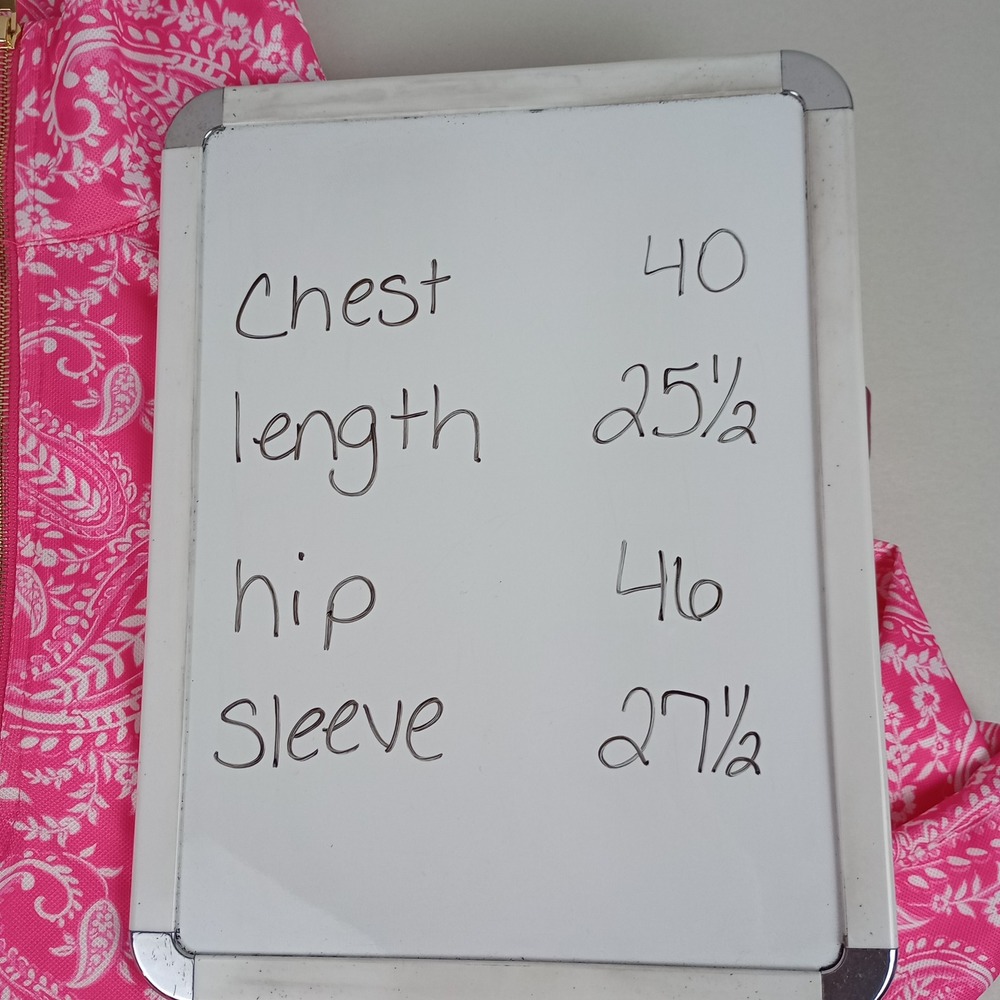 Chest 40
length 25½
hip 46
Sleeve 27½